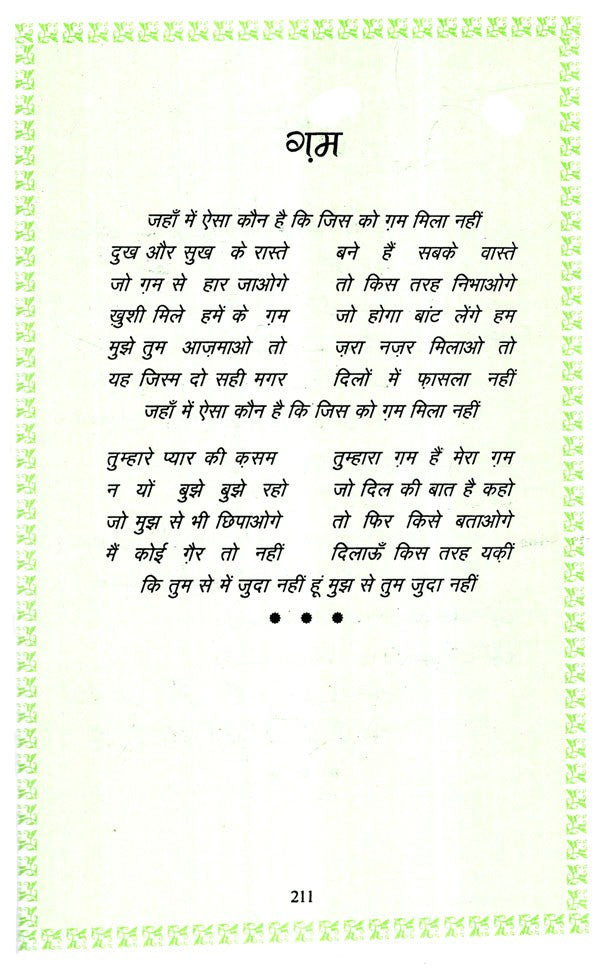 ग़म
जहाँ में ऐसा कौन है कि जिस को ग़म मिला नहीं
दुख और सुख के रास्ते बने हैं सबके वास्ते
जो ग़म से हार जाओगे तो किस तरह निभाओगे
ख़ुशी मिले हमें के ग़म जो होगा बांट लेंगे हम
मुझे तुम आज़माओ तो ज़रा नज़र मिलाओ तो
यह जिस्म दो सही मगर दिलों में फ़ासला नहीं
जहाँ में ऐसा कौन है कि जिस को ग़म मिला नहीं
तुम्हारे प्यार की क़सम तुम्हारा ग़म हैं मेरा ग़म
न यों बुझे बुझे रहो जो दिल की बात है कहो
जो मुझ से भी छिपाओगे तो फिर किसे बताओगे
मैं कोई ग़ैर तो नहीं दिलाऊँ किस तरह यक़ीं
कि तुम से में जुदा नहीं हूं मुझ से तुम जुदा नहीं
211